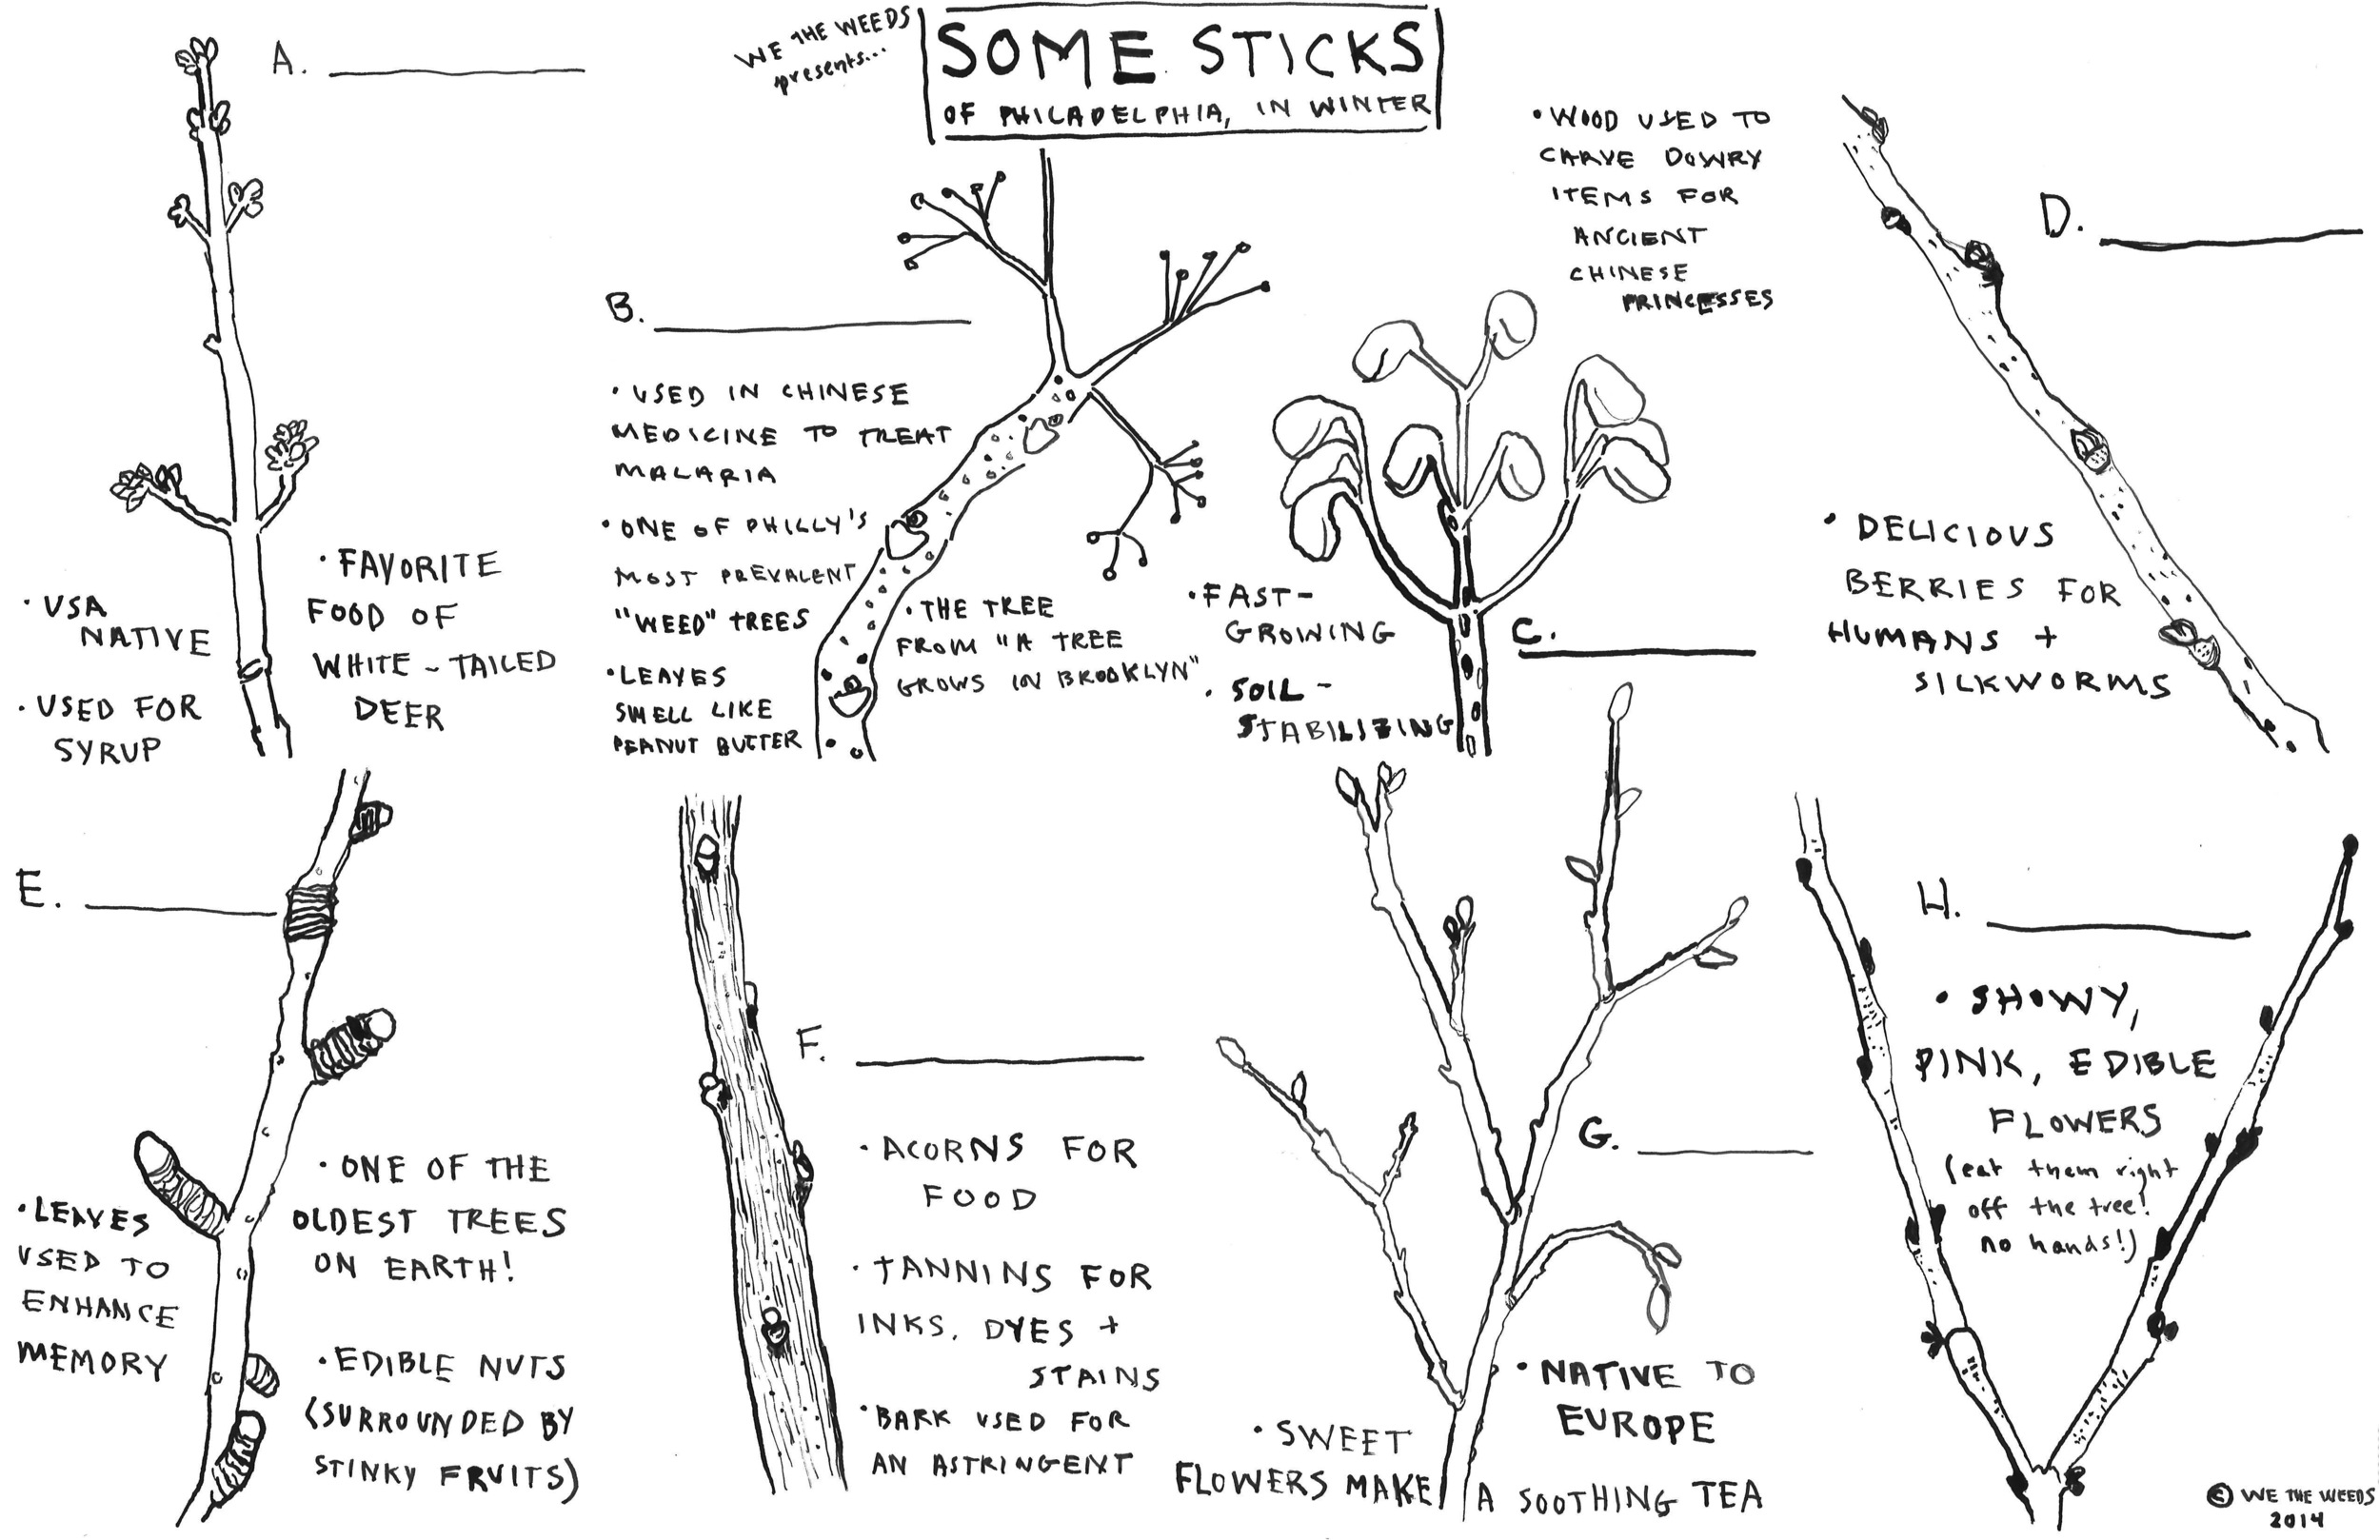 WE THE WEEDS
presents...
SOME STICKS
OF PHILADELPHIA, IN WINTER
A.
• USA
NATIVE
• USED FOR
SYRUP
• FAVORITE
FOOD OF
WHITE-TAILED
DEER
B.
• USED IN CHINESE
MEDICINE TO TREAT
MALARIA
• ONE OF PHILLY'S
MOST PREVALENT
"WEED" TREES
• LEAVES
SMELL LIKE
PEANUT BUTTER
• THE TREE
FROM "A TREE
GROWS IN BROOKLYN"
• WOOD USED TO
CARVE DOWRY
ITEMS FOR
ANCIENT
CHINESE
PRINCESSES
C.
• FAST-
GROWING
• SOIL-
STABILIZING
D.
• DELICIOUS
BERRIES FOR
HUMANS +
SILKWORMS
E.
• LEAVES
USED TO
ENHANCE
MEMORY
• ONE OF THE
OLDEST TREES
ON EARTH!
• EDIBLE NUTS
(SURROUNDED BY
STINKY FRUITS)
F.
• ACORNS FOR
FOOD
• TANNINS FOR
INKS, DYES +
STAINS
• BARK USED FOR
AN ASTRINGENT
G.
• NATIVE TO
EUROPE
• SWEET
FLOWERS MAKE A SOOTHING TEA
H.
• SHOWY,
PINK, EDIBLE
FLOWERS
(eat them right
off the tree!
no hands!)
© WE THE WEEDS
2014